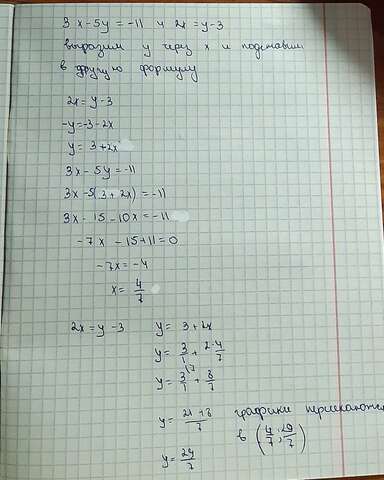 3x-5y=-11 и 2x=y-3
выразим y через x и подставим
в другую формулу
2x=y-3
-y=-3-2x
y=3+2x
3x-5y=-11
3x-5(3+2x)=-11
3x-15-10x=-11
-7x-15+11=0
-7x=-4
x=4/7
2x=y-3 y=3+2x
y=3/1+2·4/7
y=3/1\7+8/7
y=21+8/7 графики пересекаются
в (4/7;29/7)
y=29/7